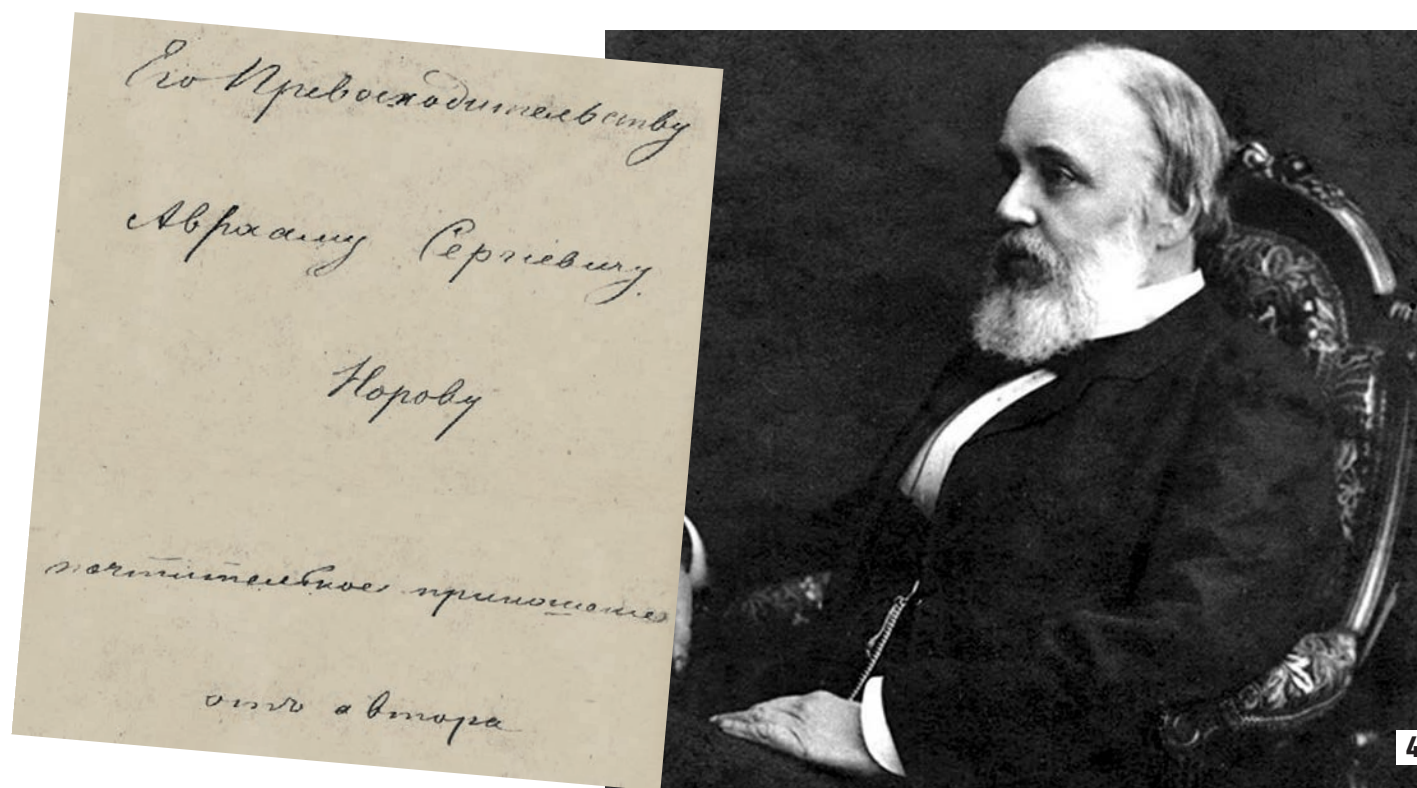 Его Превосходительству
Аврааму Сергіевичу.
Норову
почтительное приношение
отъ автора
4